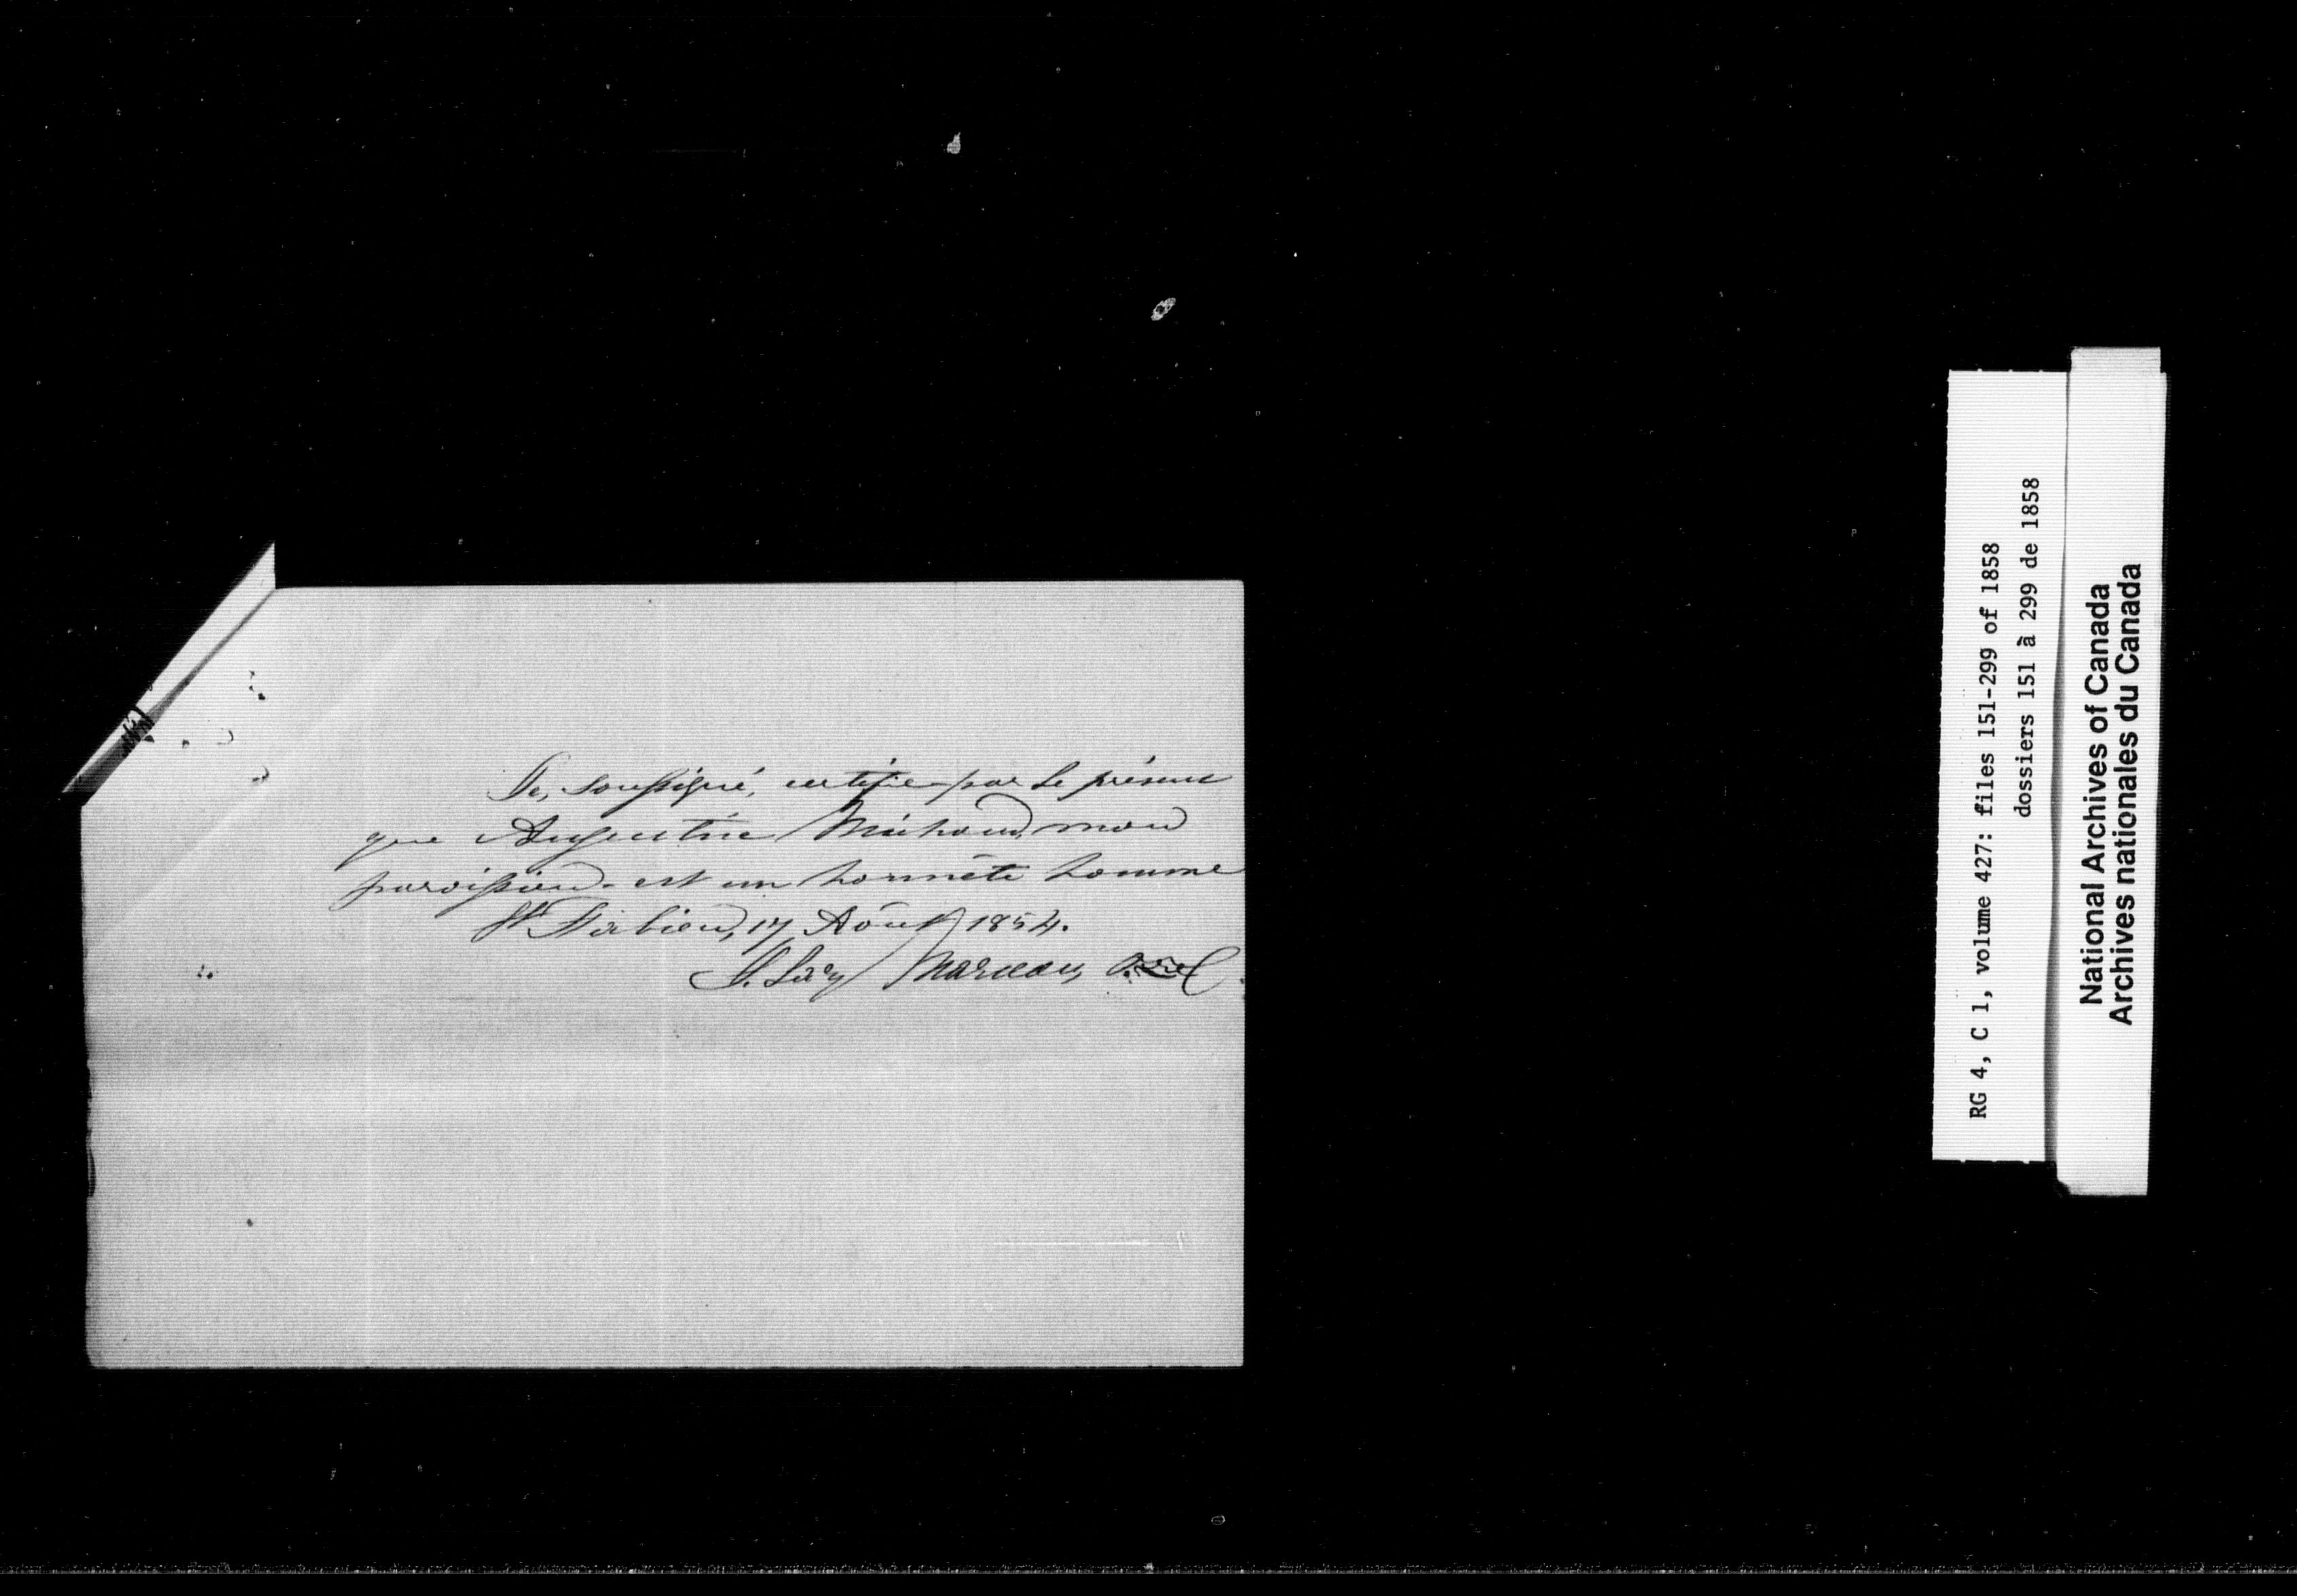 Je, soussigné, certifie par le présent
que Augustin Michaud, mon
paroissien - est un honnête homme
St Fabien, 17 Août 1854.
Marceau,
RG 4, C 1, volume 427: files 151-299 of 1858
dossiers 151 à 299 de 1858
National Archives of Canada
Archives nationales du Canada